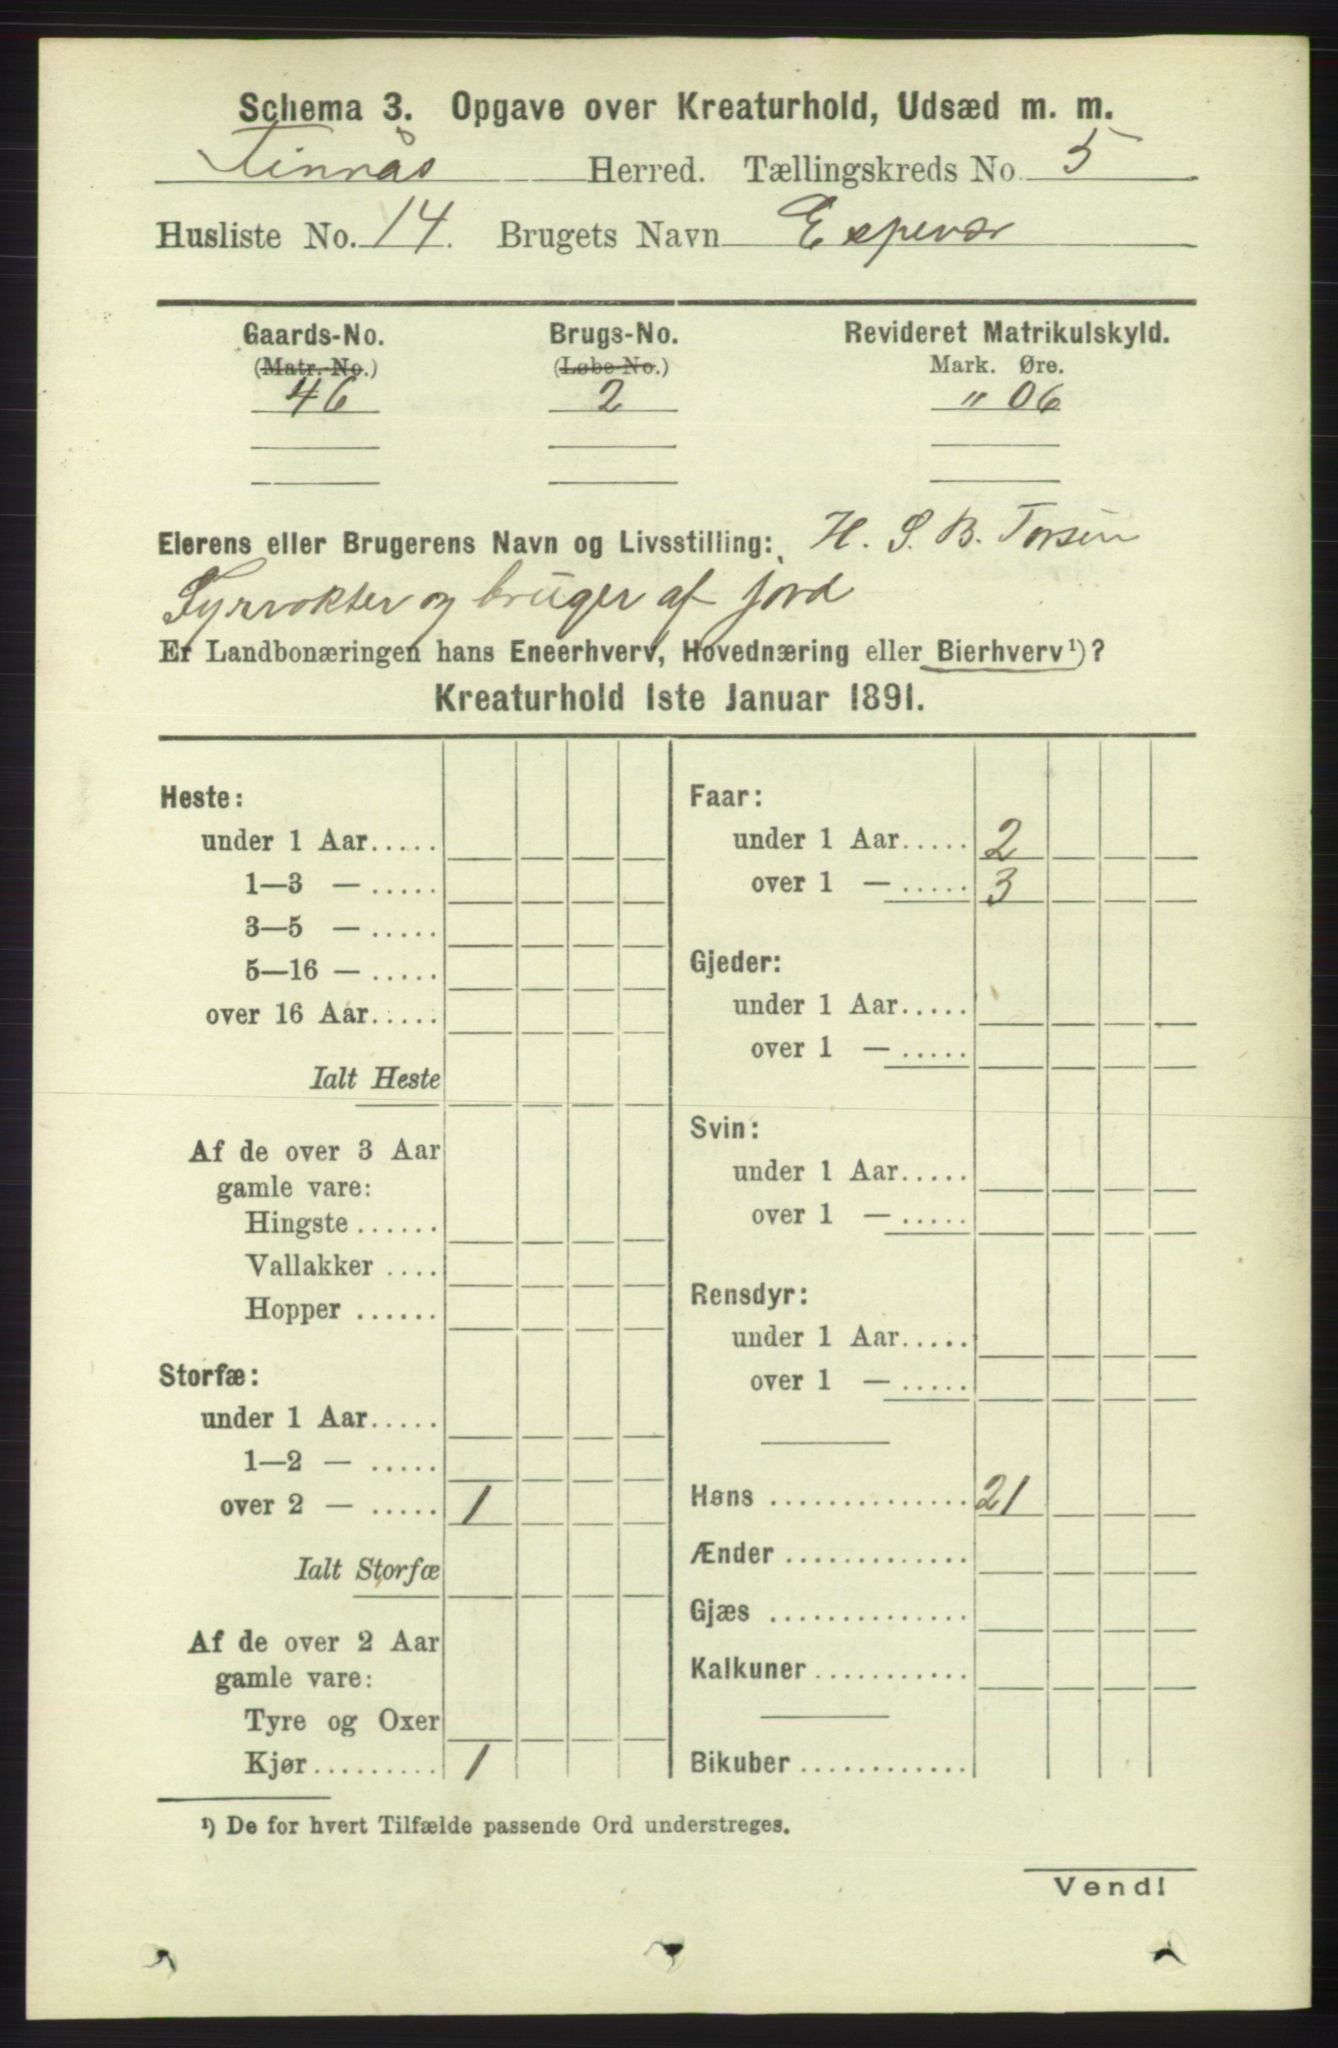 Schema 3. Opgave over Kreaturhold, Udsæd m. m.
Finnås Herred. Tællingskreds No. 5
Husliste No. 14. Brugets Navn Espevær
Gaards-No. Brugs-No. Revideret Matrikulskyld.
(Matr.-No.) (Løbe-No.) Mark. Øre.
46 2 " 06
Eierens eller Brugerens Navn og Livsstilling: H. S. B. Torsen
Fyrvokter og bruger af jord
Er Landbonæringen hans Eneerhverv, Hovednæring eller Bierhverv¹)?
Kreaturhold 1ste Januar 1891.
Heste:
under 1 Aar.....
1—3 — .....
3—5 — .....
5—16 — .....
over 16 Aar.....
Ialt Heste
Af de over 3 Aar
gamle vare:
Hingste ......
Vallakker ....
Hopper ......
Storfæ:
under 1 Aar.....
1—2 — .....
over 2 — ..... 1
Ialt Storfæ
Af de over 2 Aar
gamle vare:
Tyre og Oxer
Kjør......... 1
Faar:
under 1 Aar..... 2
over 1 — ..... 3
Gjeder:
under 1 Aar.....
over 1 — .....
Svin:
under 1 Aar.....
over 1 — .....
Rensdyr:
under 1 Aar.....
over 1 — .....
Høns .............. 21
Ænder .............
Gjæs ..............
Kalkuner...........
Bikuber ............
¹) De for hvert Tilfælde passende Ord understreges.
Vend!